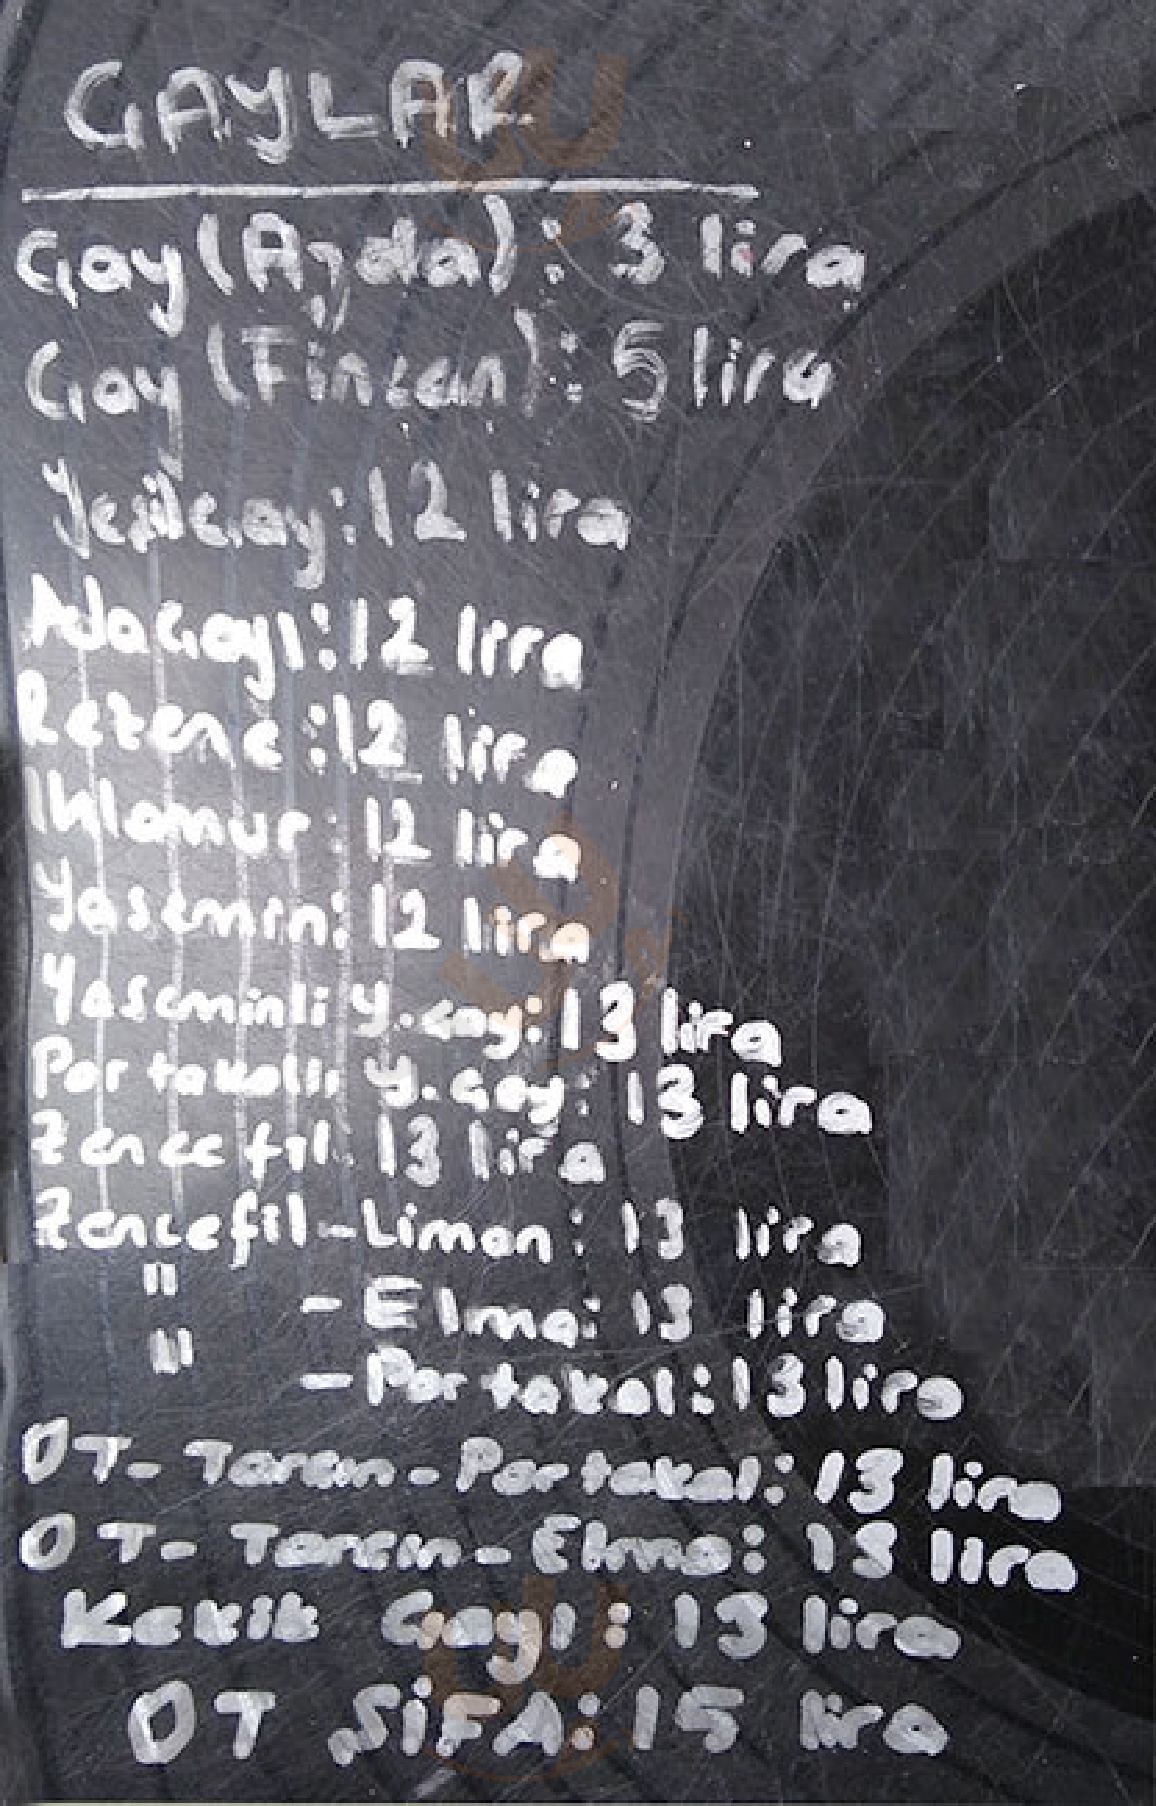 ÇAYLAR
Çay (Ajda): 3 lira
Çay (Fincan): 5 lira
Yeşilçay: 12 lira
Adaçayı: 12 lira
Rezene: 12 lira
Ihlamur: 12 lira
Yasemin: 12 lira
Yaseminli y.çay: 13 lira
Portakallı y.çay: 13 lira
Zencefil: 13 lira
Zencefil-Limon: 13 lira
" - Elma: 13 lira
" - Portakal: 13 lira
OT- Tarçın - Portakal: 13 lira
OT- Tarçın - Elma: 13 lira
Kekik Çayı: 13 lira
OT ŞİFA: 15 lira